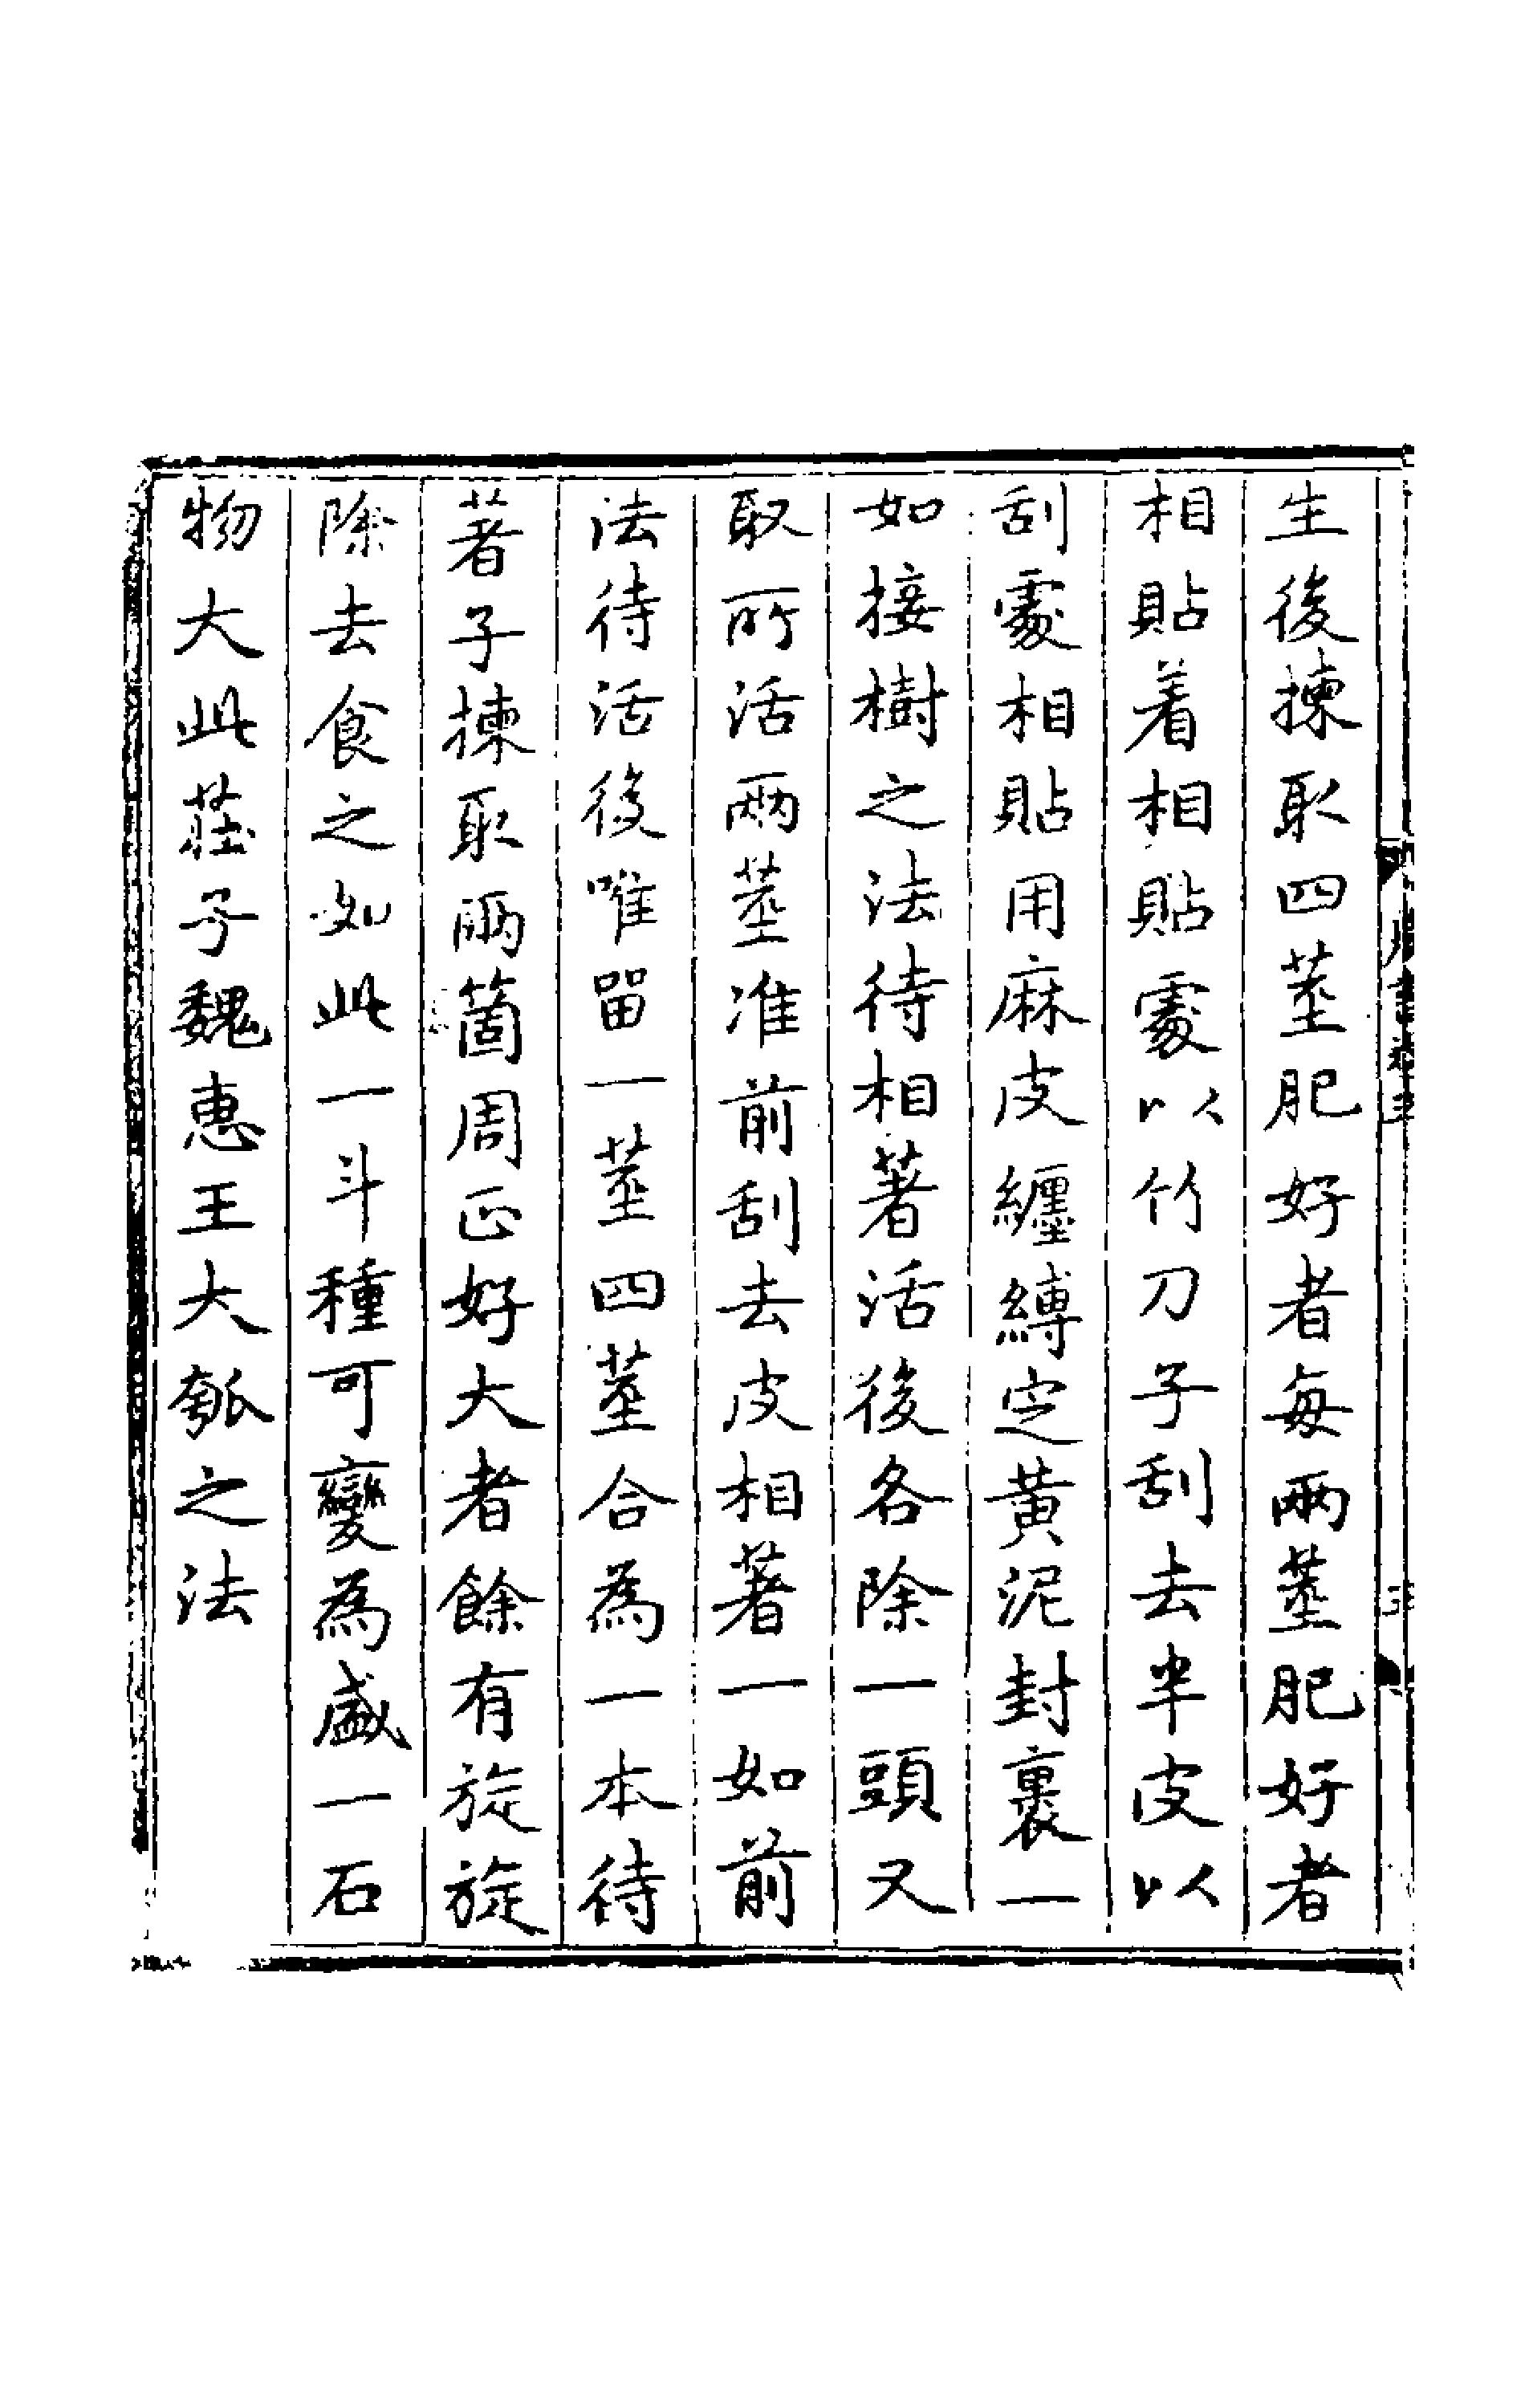 生後揀取四莖肥好者每兩莖肥好者
相貼着相貼處以竹刀子刮去半皮以
刮處相貼用麻皮纏縛定黃泥封裹一
如接樹之法待相著活後各除一頭又
取所活兩莖准前刮去皮相著一如前
法待活後唯留一莖四莖合為一本待
著子揀取兩箇周正好大者餘有旋旋
除去食之如此一斗種可變為盛一石
物大此莊子魏惠王大瓠之法